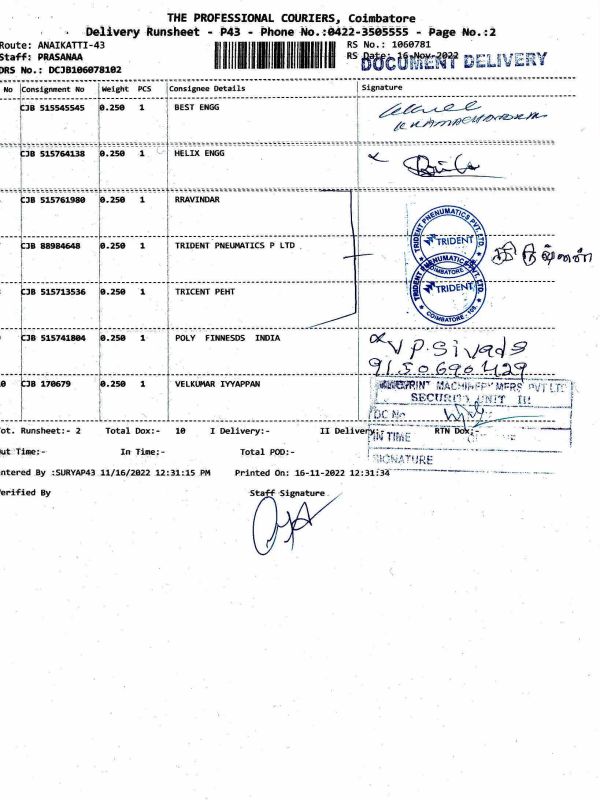 THE PROFESSIONAL COURIERS, Coimbatore
Delivery Runsheet - P43 - Phone No.:0422-3505555 - Page No.:2
Route: ANAIKATTI-43 RS No.: 1060781
Staff: PRASANAA RS Date: 16-Nov-2022
DRS No.: DCJB106078102 DOCUMENT DELIVERY
No Consignment No Weight PCS Consignee Details Signature
CJB 515545545 0.250 1 BEST ENGG
CJB 515764138 0.250 1 HELIX ENGG
CJB 515761980 0.250 1 RRAVINDAR
TRIDENT PNEUMATICS PVT. LTD.
TRIDENT
CJB 88984648 0.250 1 TRIDENT PNEUMATICS P LTD .
COIMBATORE
TRIDENT PNEUMATICS PVT. LTD.
CJB 515713536 0.250 1 TRICENT PEHT TRIDENT
COIMBATORE
CJB 515741804 0.250 1 POLY FINNESDS INDIA
VP.Sivads
9150690429
CJB 170679 0.250 1 VELKUMAR IYYAPPAN
MACHINERY MFRS PVT LTD
SECURITY UNIT III
DC No
Tot. Runsheet:- 2 Total Dox:- 10 I Delivery:- II Delivery:- RTN Dox:-
IN TIME
Out Time:- In Time:- Total POD:-
SIGNATURE
Entered By :SURYAP43 11/16/2022 12:31:15 PM Printed On: 16-11-2022 12:31:34
Verified By Staff Signature